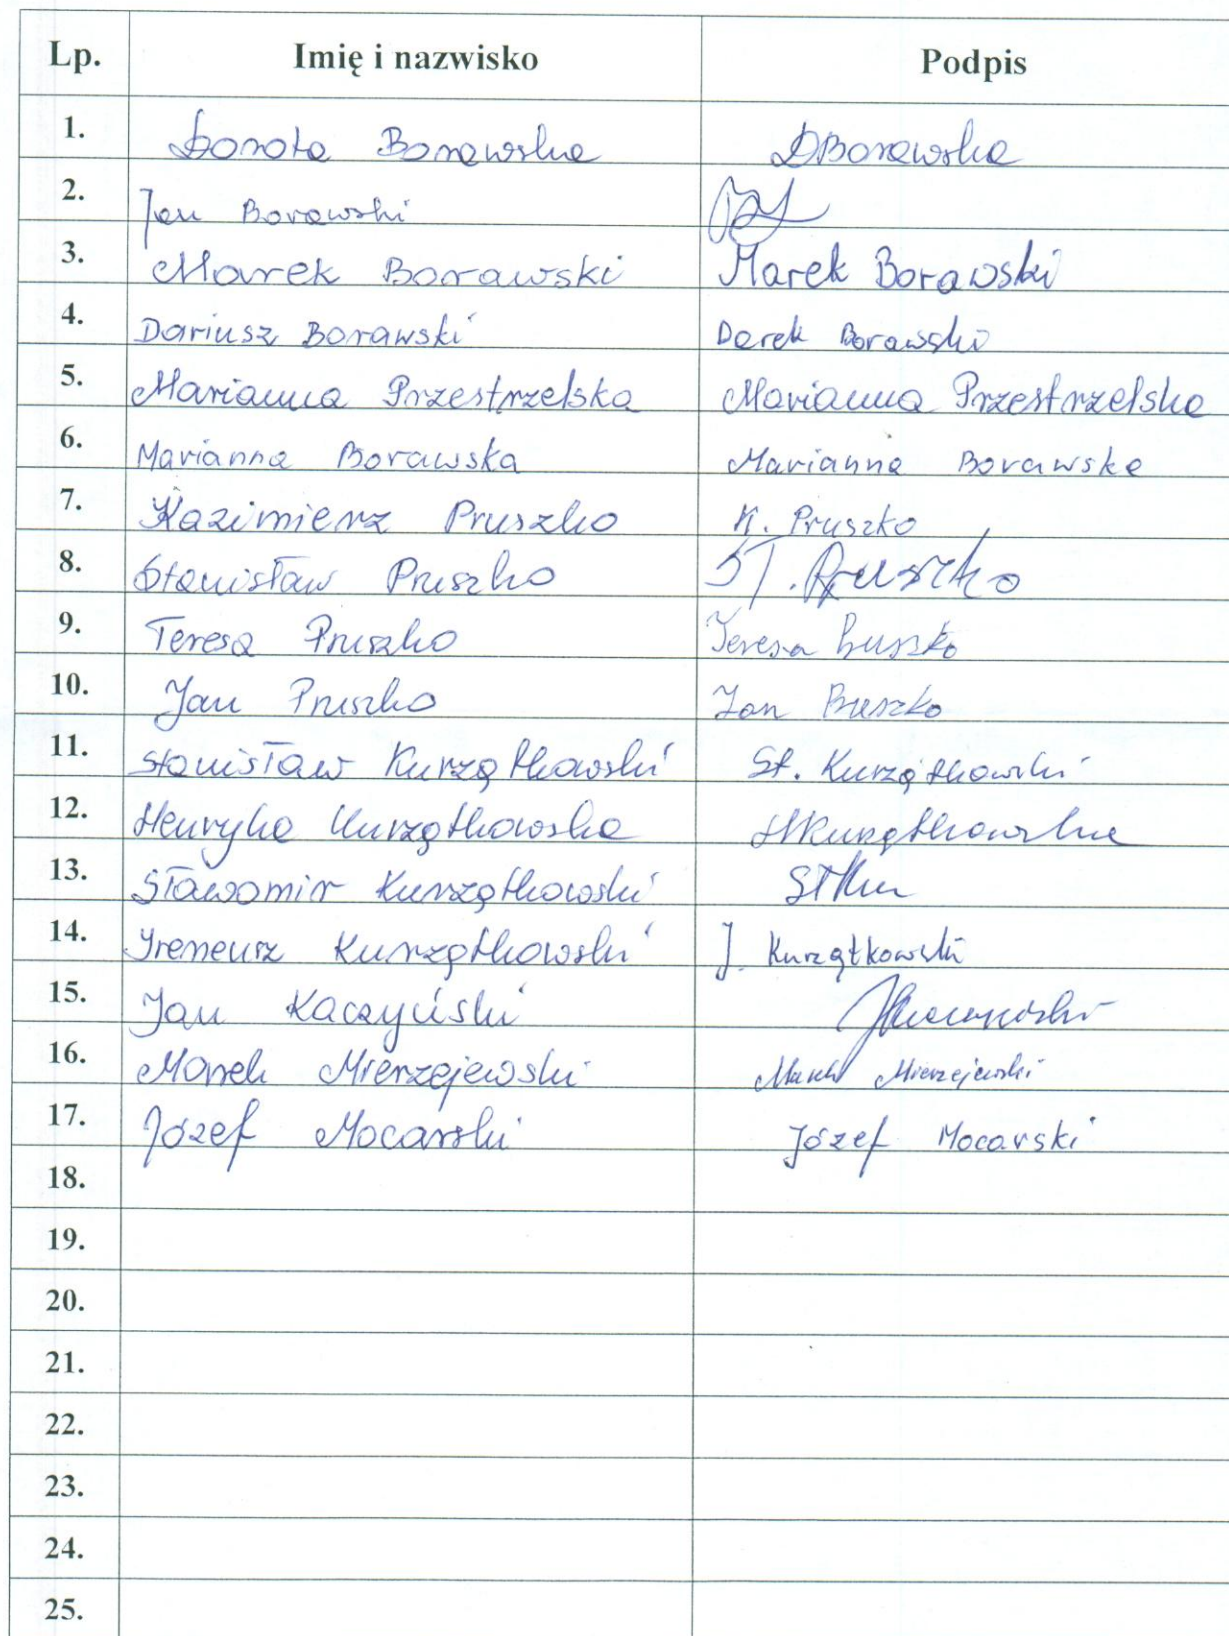 Lp. Imię i nazwisko Podpis
1. Dorota Borawska DBorawska
2. Jan Borawski
3. Marek Borawski Marek Borawski
4. Dariusz Borawski Darek Borawski
5. Marianna Przestrzelska Marianna Przestrzelska
6. Marianna Borawska Marianna Borawska
7. Kazimierz Pruszko K. Pruszko
8. Stanisław Pruszko ST. Pruszko
9. Teresa Pruszko Teresa Pruszko
10. Jan Pruszko Jan Pruszko
11. Stanisław Kurządkowski St. Kurzątkowski
12. Henryka Kurzątkowska HKurzątkowska
13. Sławomir Kurzątkowski
14. Ireneusz Kurzątkowski J. Kurzątkowski
15. Jan Kaczyński
16. Marek Mierzejewski Marek Mierzejewski
17. Józef Mocarski Józef Mocarski
18.
19.
20.
21.
22.
23.
24.
25.